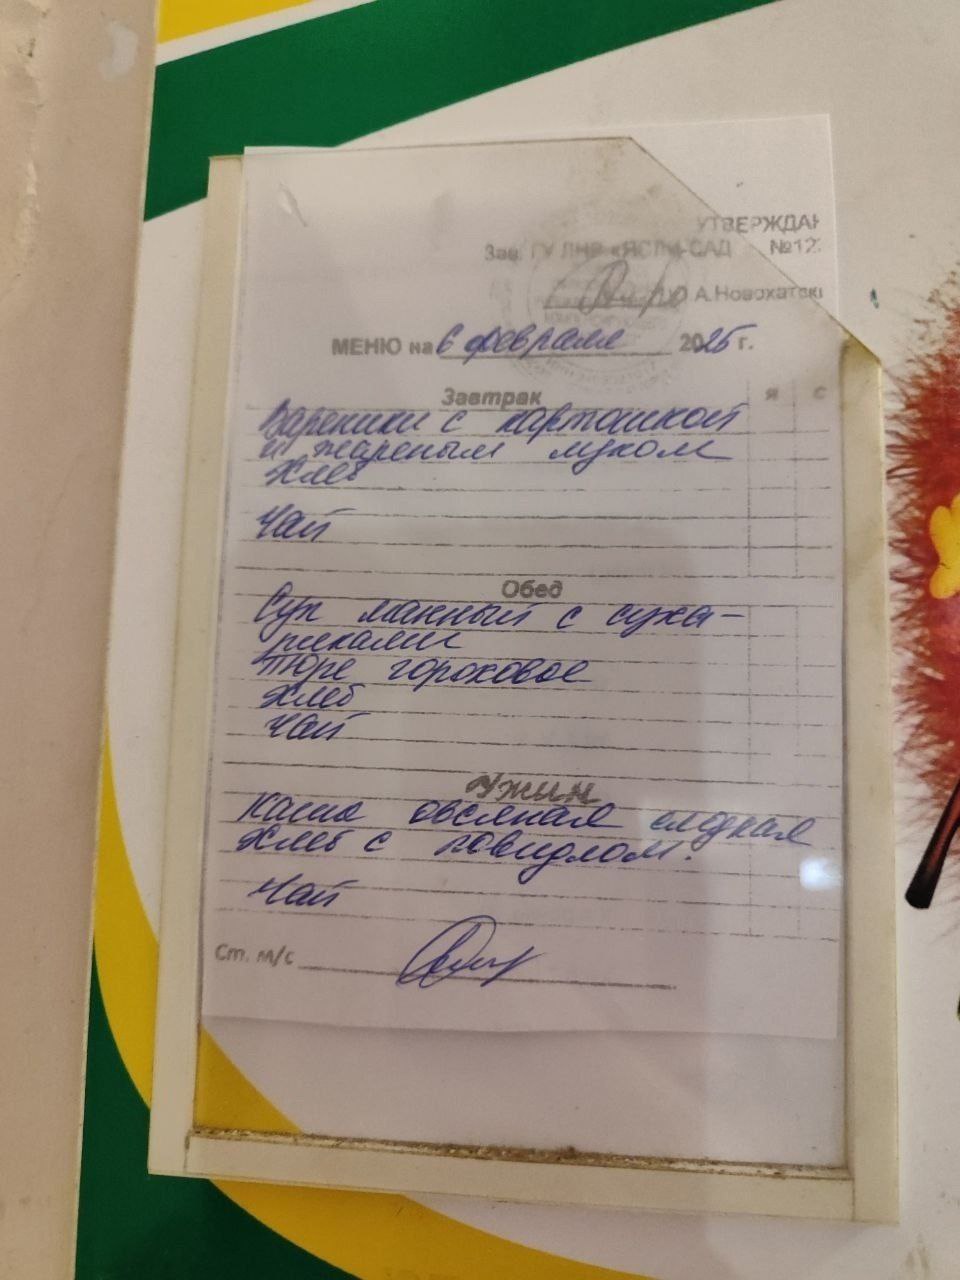 УТВЕРЖДАЮ
Зав. ГУ ЛНР «ЯСЛИ-САД №12
А.Новохатск
МЕНЮ на 6 февраля 2025 г.
Завтрак я с
Вареники с картошкой
и жареным луком
Хлеб
Чай
Обед
Суп манный с суха-
риками
Пюре гороховое
Хлеб
Чай
Ужин
Каша овсяная сладкая
Хлеб с повидлом.
Чай
Ст. м/с